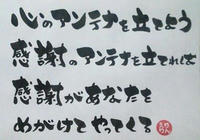 心のアンテナを立てよう
感謝のアンテナを立てれば
感謝があなたを
めがけてやってくる